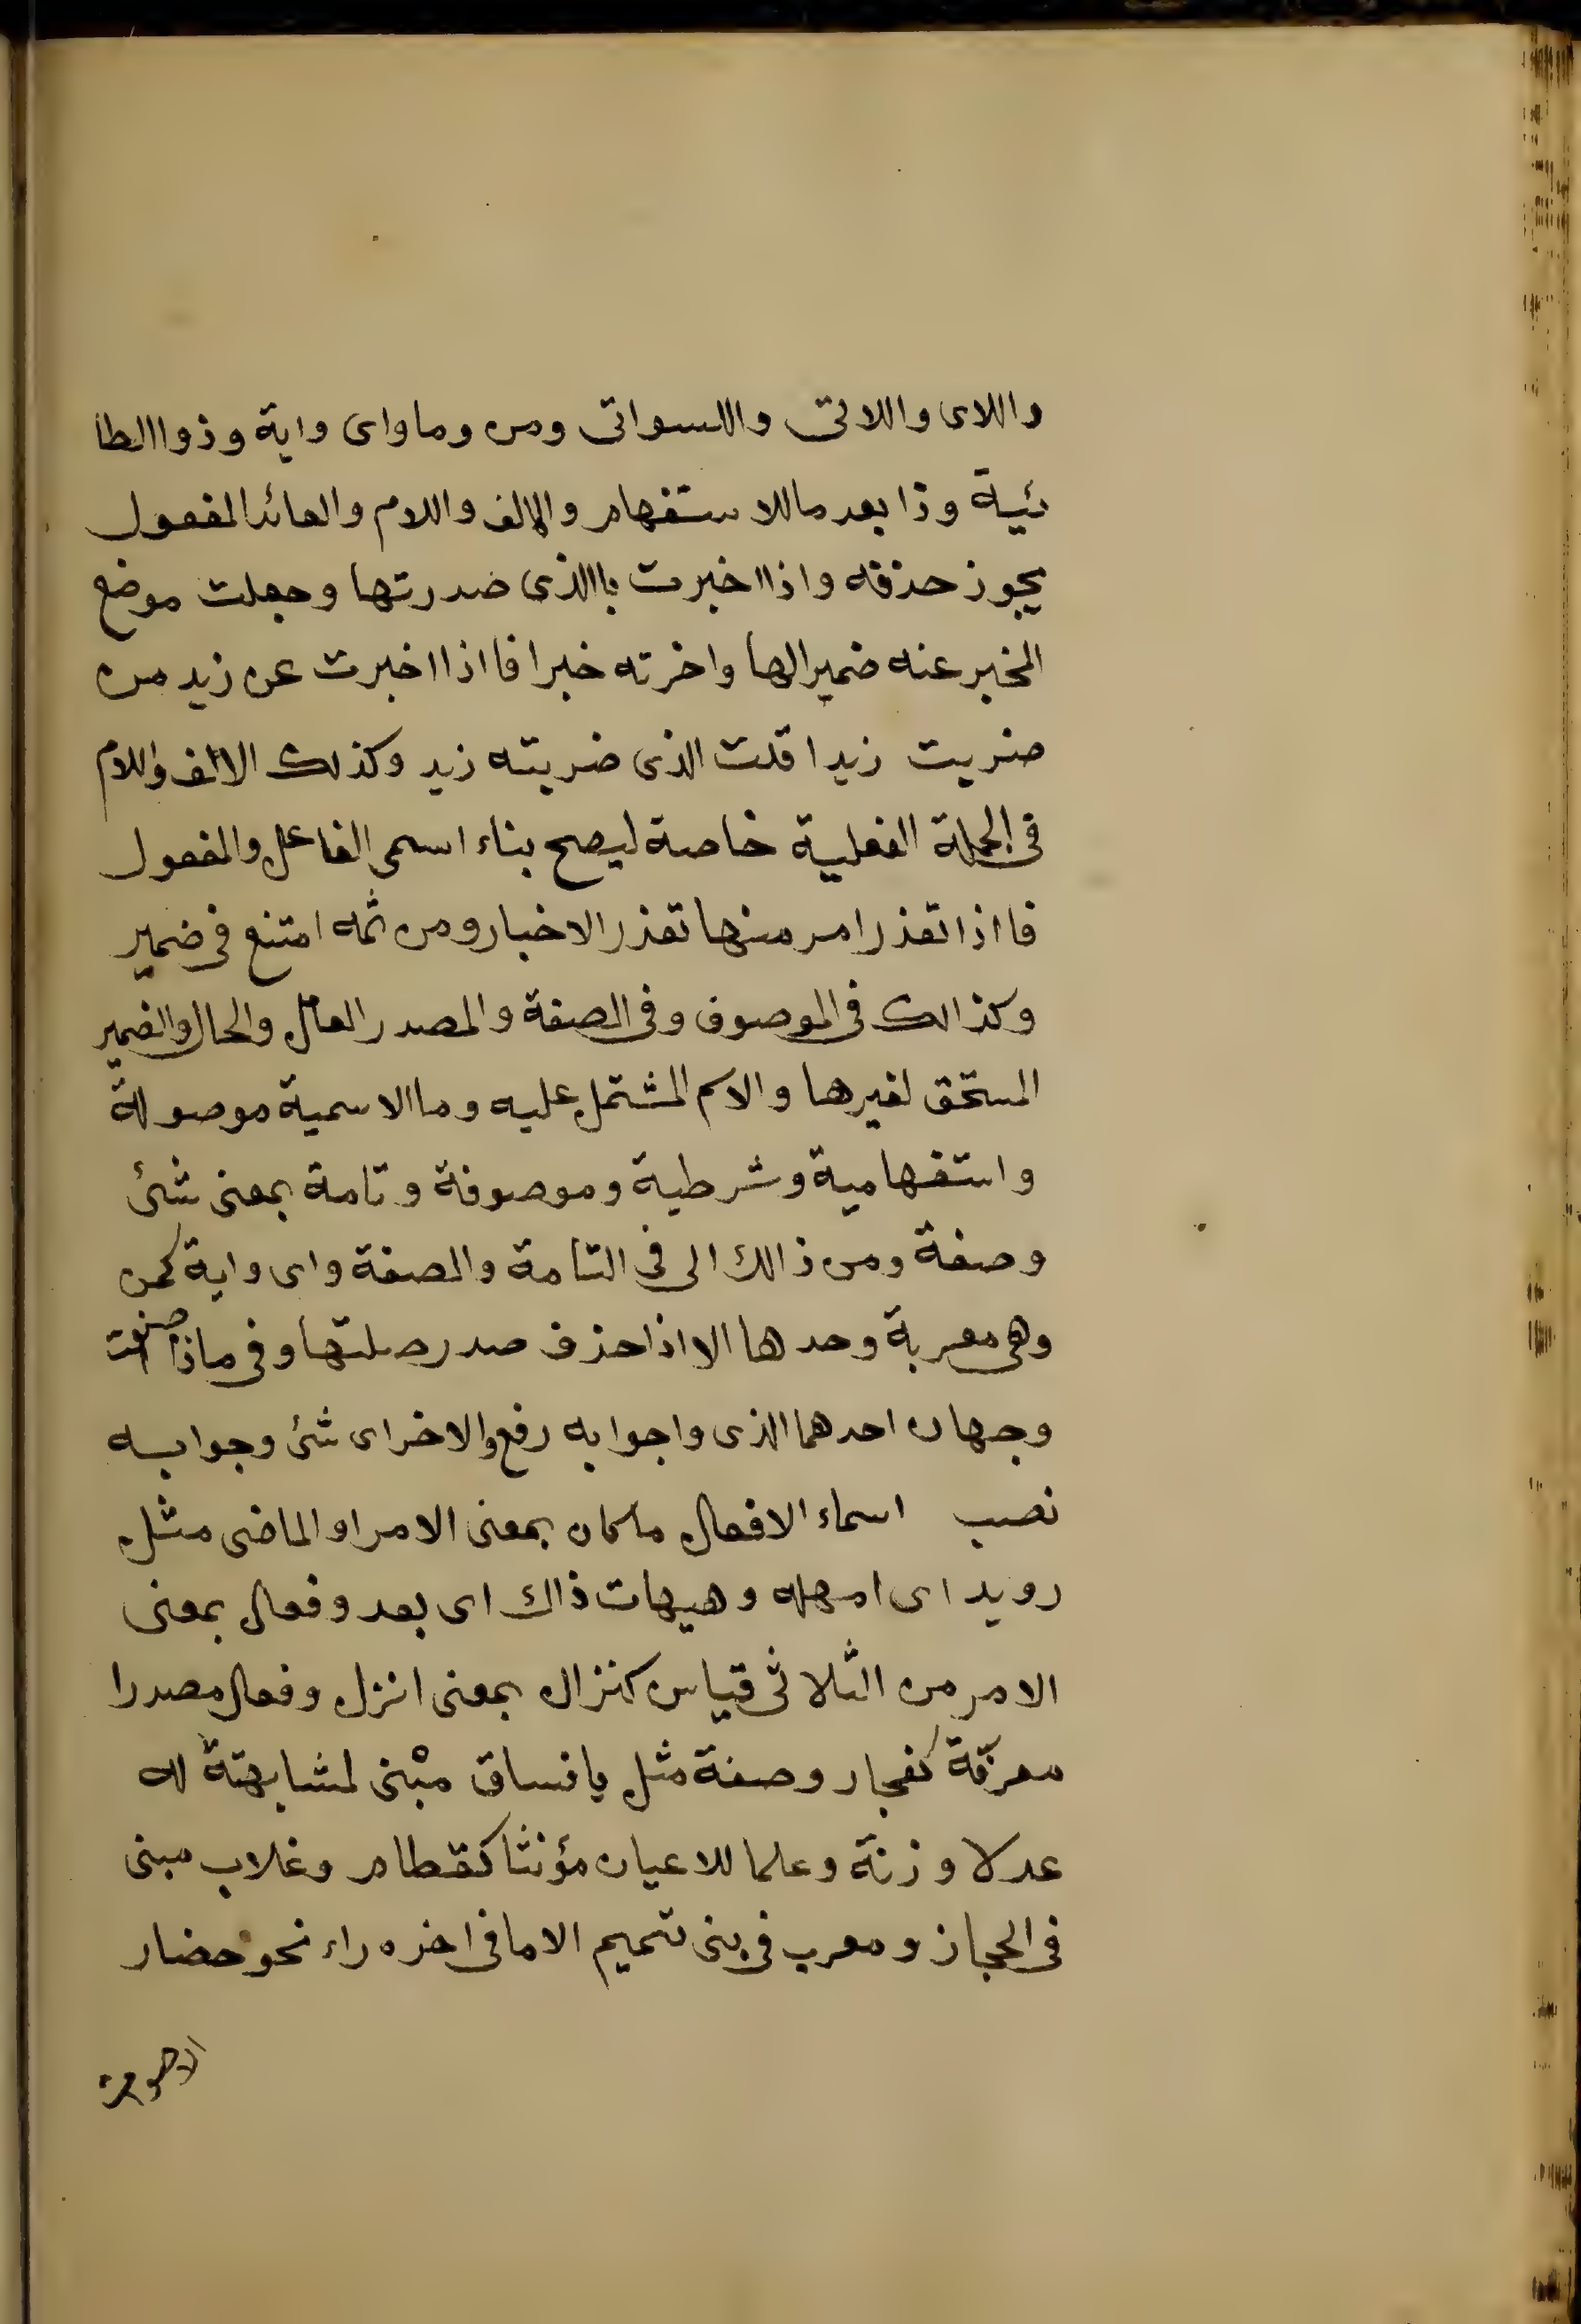 واللاى واللاتى واللسواتى ومن وما واى واية وذو االطا
ئية وذا بعد ماللا ستفهام والالف واللام والعائد المفعول
يجوز حذفه واذا اخبرت باالذى ضدرتها وجعلت موضع
المخبر عنه ضميرالها واخرته خبرا فااذا اخبرت عن زيد من
ضربت زيدا قلت الذى ضربته زيد وكذلك الالف واللام
فى الجملة الفعلية خاصة ليصح بناء اسمى الفاعل والمفعول
فااذا تعذر امر منها تعذر الاخبار ومن ثمه امتنع فى ضمير
وكذالك فى الموصوف وفى الصفة والمصدر العامل والحال والضمير
المستحق لغيرها والاسم المشتمل عليه وما الاسمية موصولة
واستفهامية وشرطية وموصوفة وتامة بمعنى شئ
وصفة ومن ذالك الى فى التامة والصفة واى واية كمن
وهى معربة وحدها الا اذا حذف صدر صلتها وفى ماذا صنعت
وجهان احدهما الذى واجوابه رفع والاخر اى شئ وجوابه
نصب اسماء الافعال ماكان بمعنى الامر او الماضى مثل
رويد اى امهله وهيهات ذاك اى بعد وفعال بمعنى
الامر من الثلاثى قياس كنزال بمعنى انزل وفعال مصدرا
معرفة كفجار وصفة مثل يا فساق مبْنى لمشابهتة له
عدلا وزنة وعلما للاعيان مؤنثا كقطام وغلاب مبنى
فى الحجاز ومعرب فى بنى تميم الا ما فى اخره راء نحو حضار